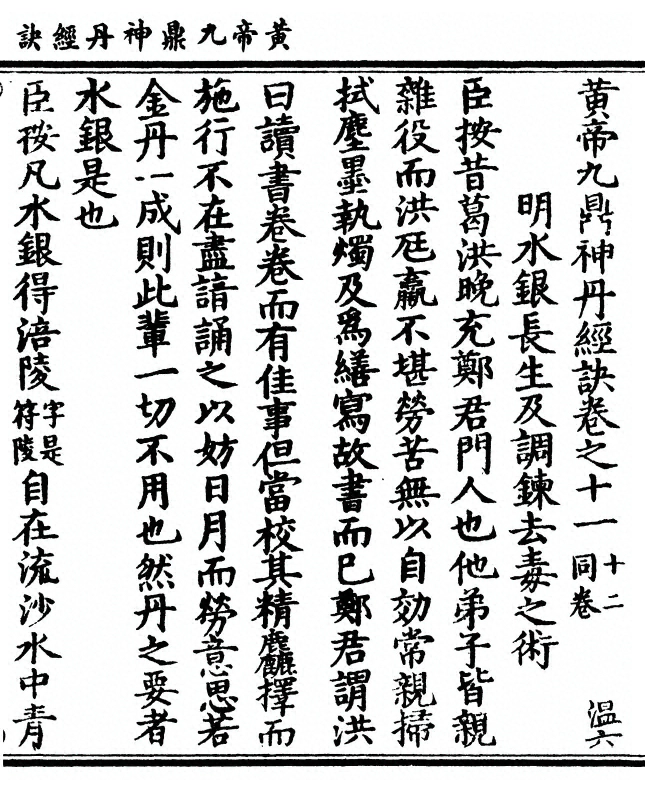 黃帝九鼎神丹經訣
黃帝九鼎神丹經訣卷之十一 十二同卷 溫六
明水銀長生及調鍊去毒之術
臣按昔葛洪晚充鄭君門人也他弟子皆親
雜役而洪尫羸不堪勞苦無以自効常親掃
拭塵墨執燭及爲繕寫故書而已鄭君謂洪
曰讀書卷卷而有佳事但當校其精麤擇而
施行不在盡諳誦之以妨日月而勞意思若
金丹一成則此輩一切不用也然丹之要者
水銀是也
臣按凡水銀得涪陵字是符陵自在流沙水中青